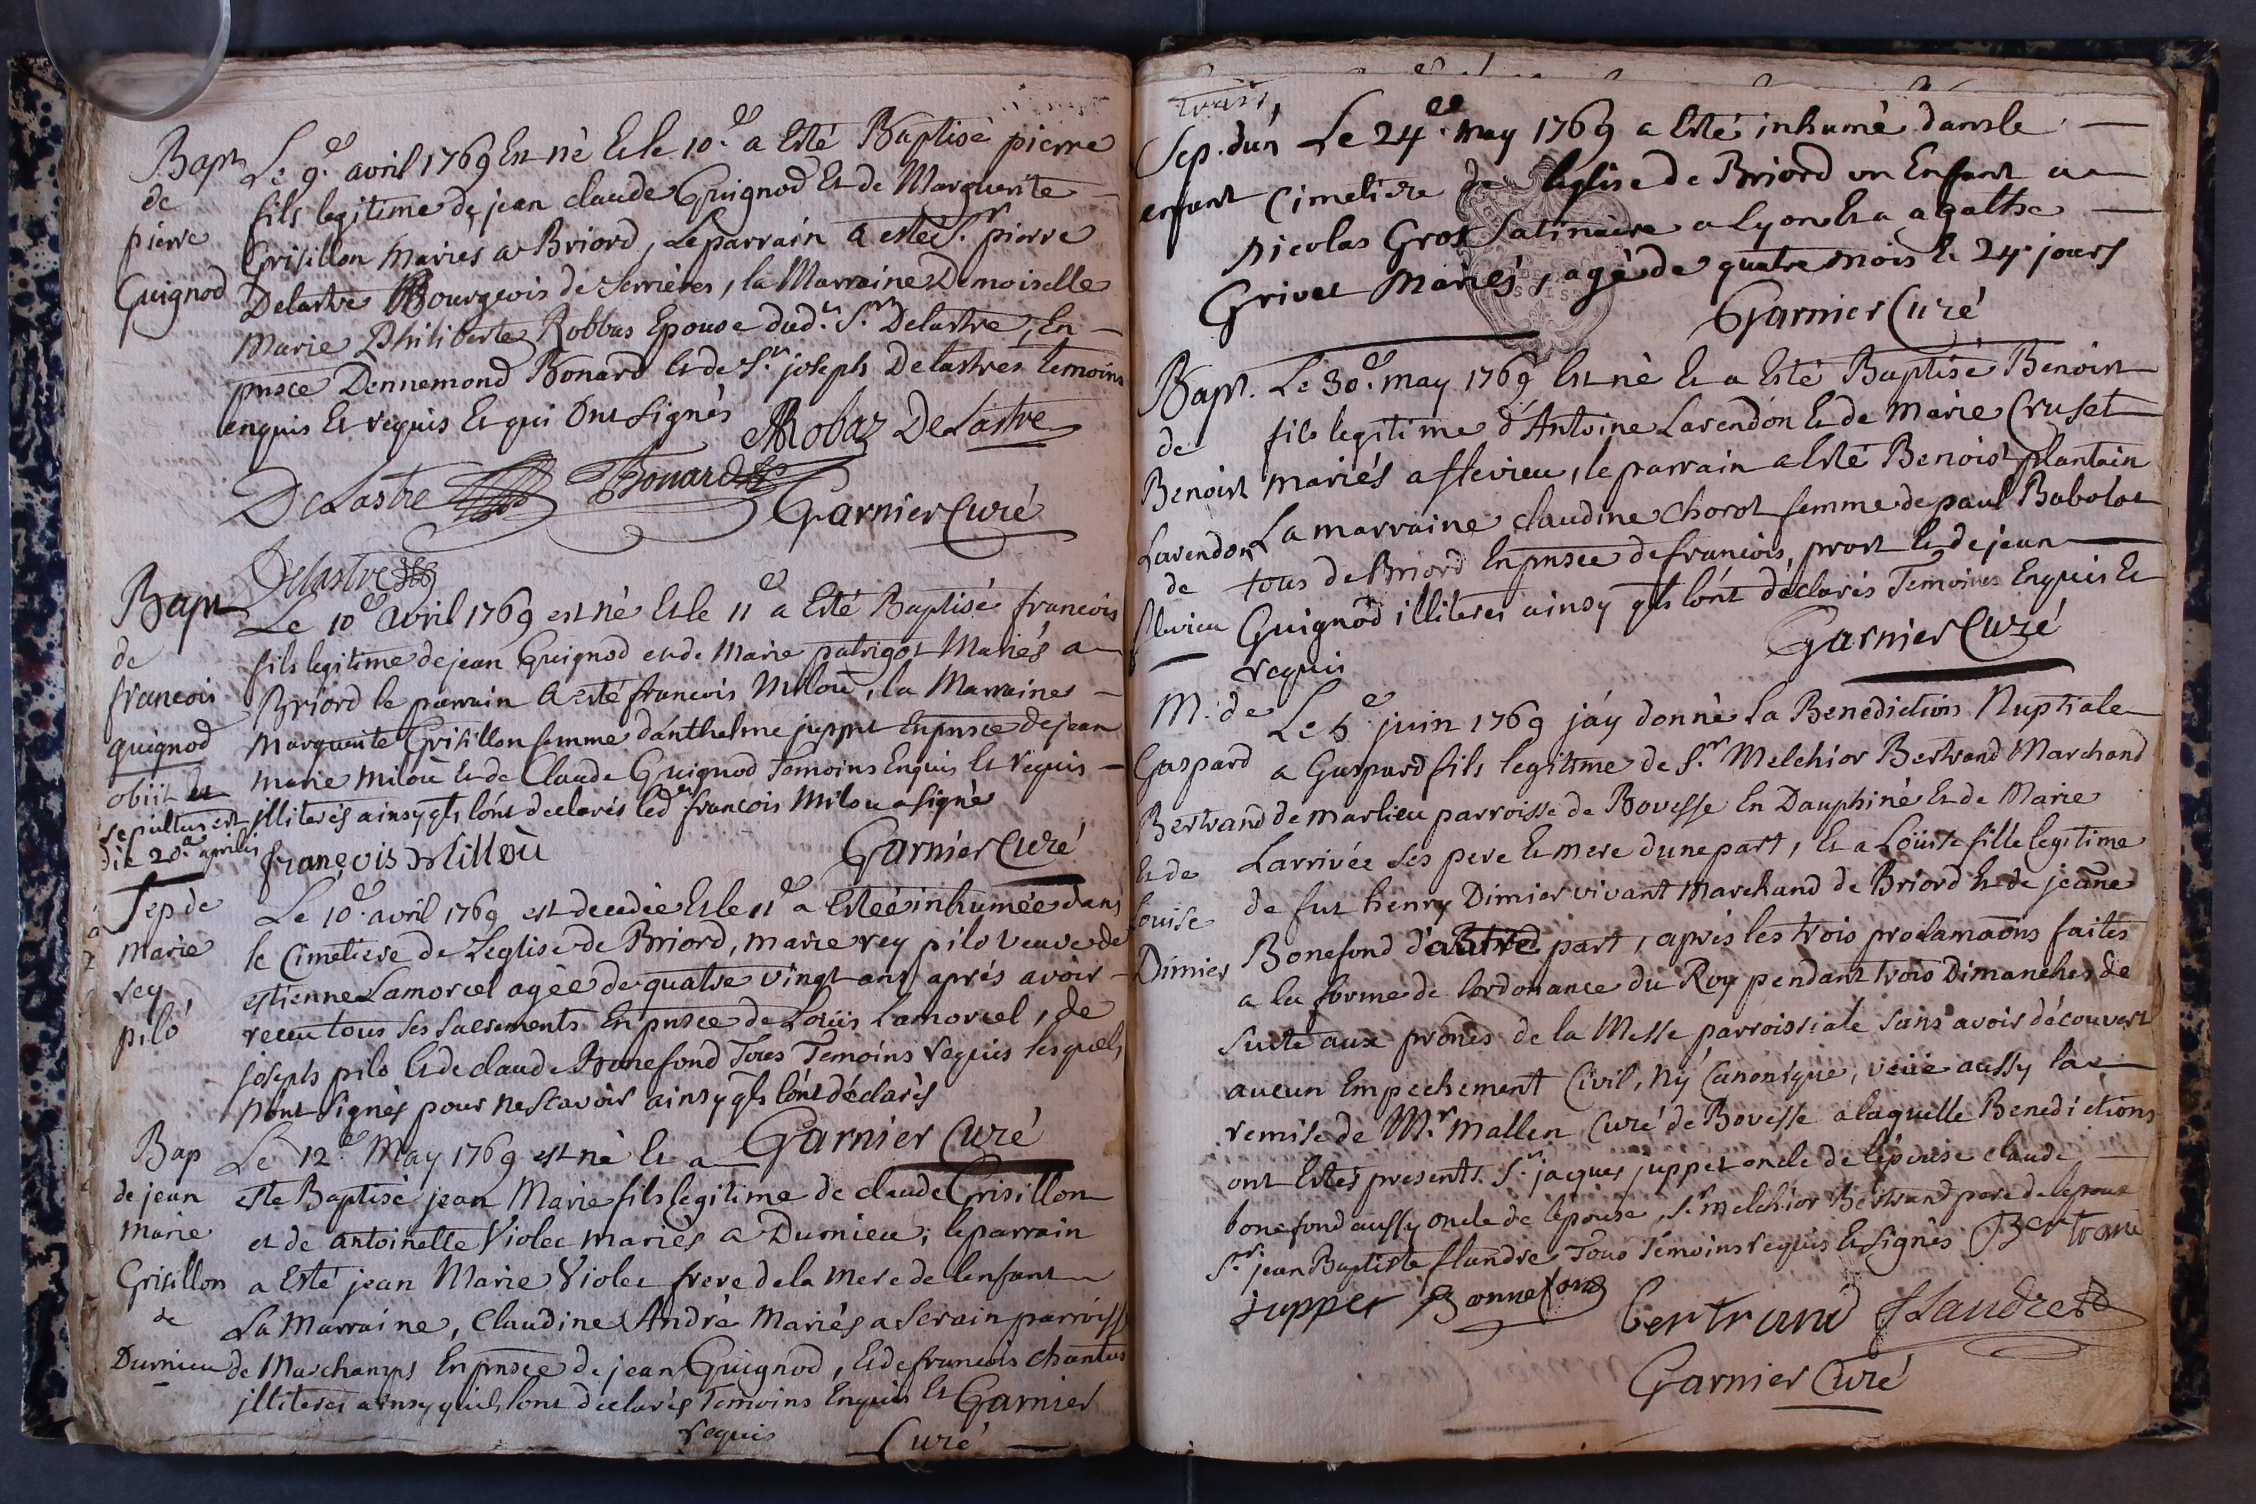 Bapt
de
pierre
Guignod
Le 9.e avril 1769 Est né Et le 10.e a Esté Baptisé pierre
fils legitime de jean claude Guignod Et de Marguerite
Grisillon Mariés a Briord, Le parrain a esté S.r pierre
Delastre Bourgeois de Serrieres, la Marraine Demoiselle
Marie Philiberte Robbas Epouse dud.t S.r Delastre, En
pnsce Dennemond Bonard Et de S.r joseph Delastres temoins
enquis Et requis Et qui Ont signés MRobaz DeLastre
DeLastre Bonard
Garnier Curé
Delastre
Bapt
de
francois
guignod
obiit et
sepultus est
die 20.a aprilis
Le 10.e avril 1769 est né Et le 11.e a Esté Baptisé francois
fils legitime de jean Guignod et de Marie patrigot Mariés a
Briord le parrain a esté francois Milou, la Marraine
Marguerite Grisillon femme d'anthelme juppet En pnsce de jean
marie milou Et de Claude Guignod Temoins Enquis Et requis
illiterés ainsy qls lónt declarés led. francois Milou a signé
françois Millou
Garnier Curé
Sep de
Marie
rey
piló
Le 10.e avril 1769 est decedée Et le 11.e a Estée inhumée dans
le Cimetiere de Leglise de Briord, marie rey pilo veuve de
estienne Lamorcel agée de quatre vingt ans aprés avoir
receu tous ses sacrements En pnsce de Loüis Lamorcel, de
joseph pilo Et de claude Bonefond Tous Temoins requis lesquels
nónt signés pour ne scavoir ainsy qls lónt déclarés
Garnier Curé
Bap
de jean
Marie
Grisillon
de
Durnieu
Le 12.e May 1769 est né Et a
esté Baptisé jean Marie fils legitime de claude Grisillon
et de antoinette Violet mariés a Durnieu; le parrain
a Esté jean Marie Violet frere de la mere de lenfant
La Marraine, Claudine André Mariés a Serain parroisse
de Marchamps En pnsce de jean Guignod, Et de francois chantus
illiterés ainsy quils lont declarés Temoins Enquis Et
requis
Garnier
Curé
Sep. dún
enfant
Le 24.e may 1769 a Esté inhumé dans le
Cimetiere de leglise de Briord un Enfant a
nicolas Gros Satinaire a Lyon Et a agathe
Grivet Mariés, agé de quatre mois le 24 jours
Garnier Curé
Bapt.
de
Benoist
Lavendon
de
flevieu
Le 30.e may 1769 Est né Et a Esté Baptisé Benoist
fils legitime d'Antoine Lavendón Et de Marie Cruset
mariés a flevieu, le parrain a Esté Benoist plantain
La marraine claudine chorot femme de paul Babolat
tous de Briord En pnsce de francois, prost Et de jean
Guignod illiterés ainsy qls lónt déclarés Temoins Enquis Et
requis
Garnier Curé
M. de
Gaspard
Bertrand
Et de
Louise
Dimier
Le 5.e juin 1769 j'áy donné la Benediction Nuptiale
a Gaspard fils legitime de S.r Melchior Bertrand Marchand
de marlieu parroisse de Bovesse En Dauphiné Et de Marie
Larrivée ses pere Et mere dune part, Et a Loüise fille legitime
de fut henry Dimier vivant Marchand de Briord Et de jeane
Bonefond d'autre part, aprés les trois proclamaons faites
a la forme de lordonance du Roy pendant trois Dimanches de
suite aux prônes de la Messe parroissiale sans avoir découvert
aucun Empechement Civil, Ny Canonique, veüe aussy la
remise de M.r mallen Curé de Bovesse a laquelle Benediction
ont Estés presents. S.r jaques juppet oncle de lépouse claude
bonefond aussy oncle de lépouse, S.r melchior Bertrand pere de lépoux
S.r jean Baptiste flandre, Tous Témoins requis Et signés Bertrand
jupper Bonnefond Bertrand flandre
Garnier Curé